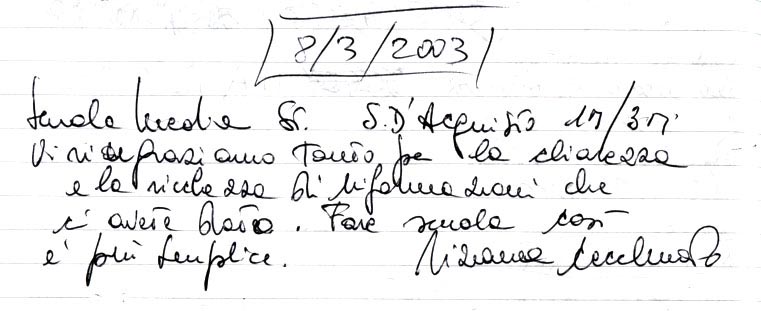 8/3/2003
Scuola Media St. S. D'Acquisto 1M/3M
Vi ringraziamo tanto per la chiarezza
e la ricchezza di informazioni che
ci avete dato. Fare scuola così
è più semplice.